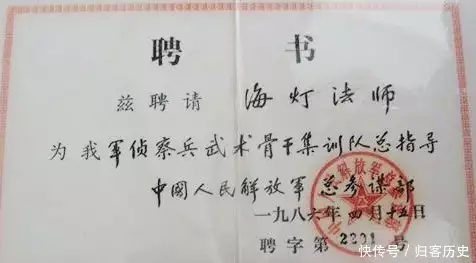 聘书
兹聘请 海灯法师
为我军侦察兵武术骨干集训队总指导
中國人民解放军 总参谋部
一九八六年四月十五日
聘字第2201号
快传号 / 归客历史